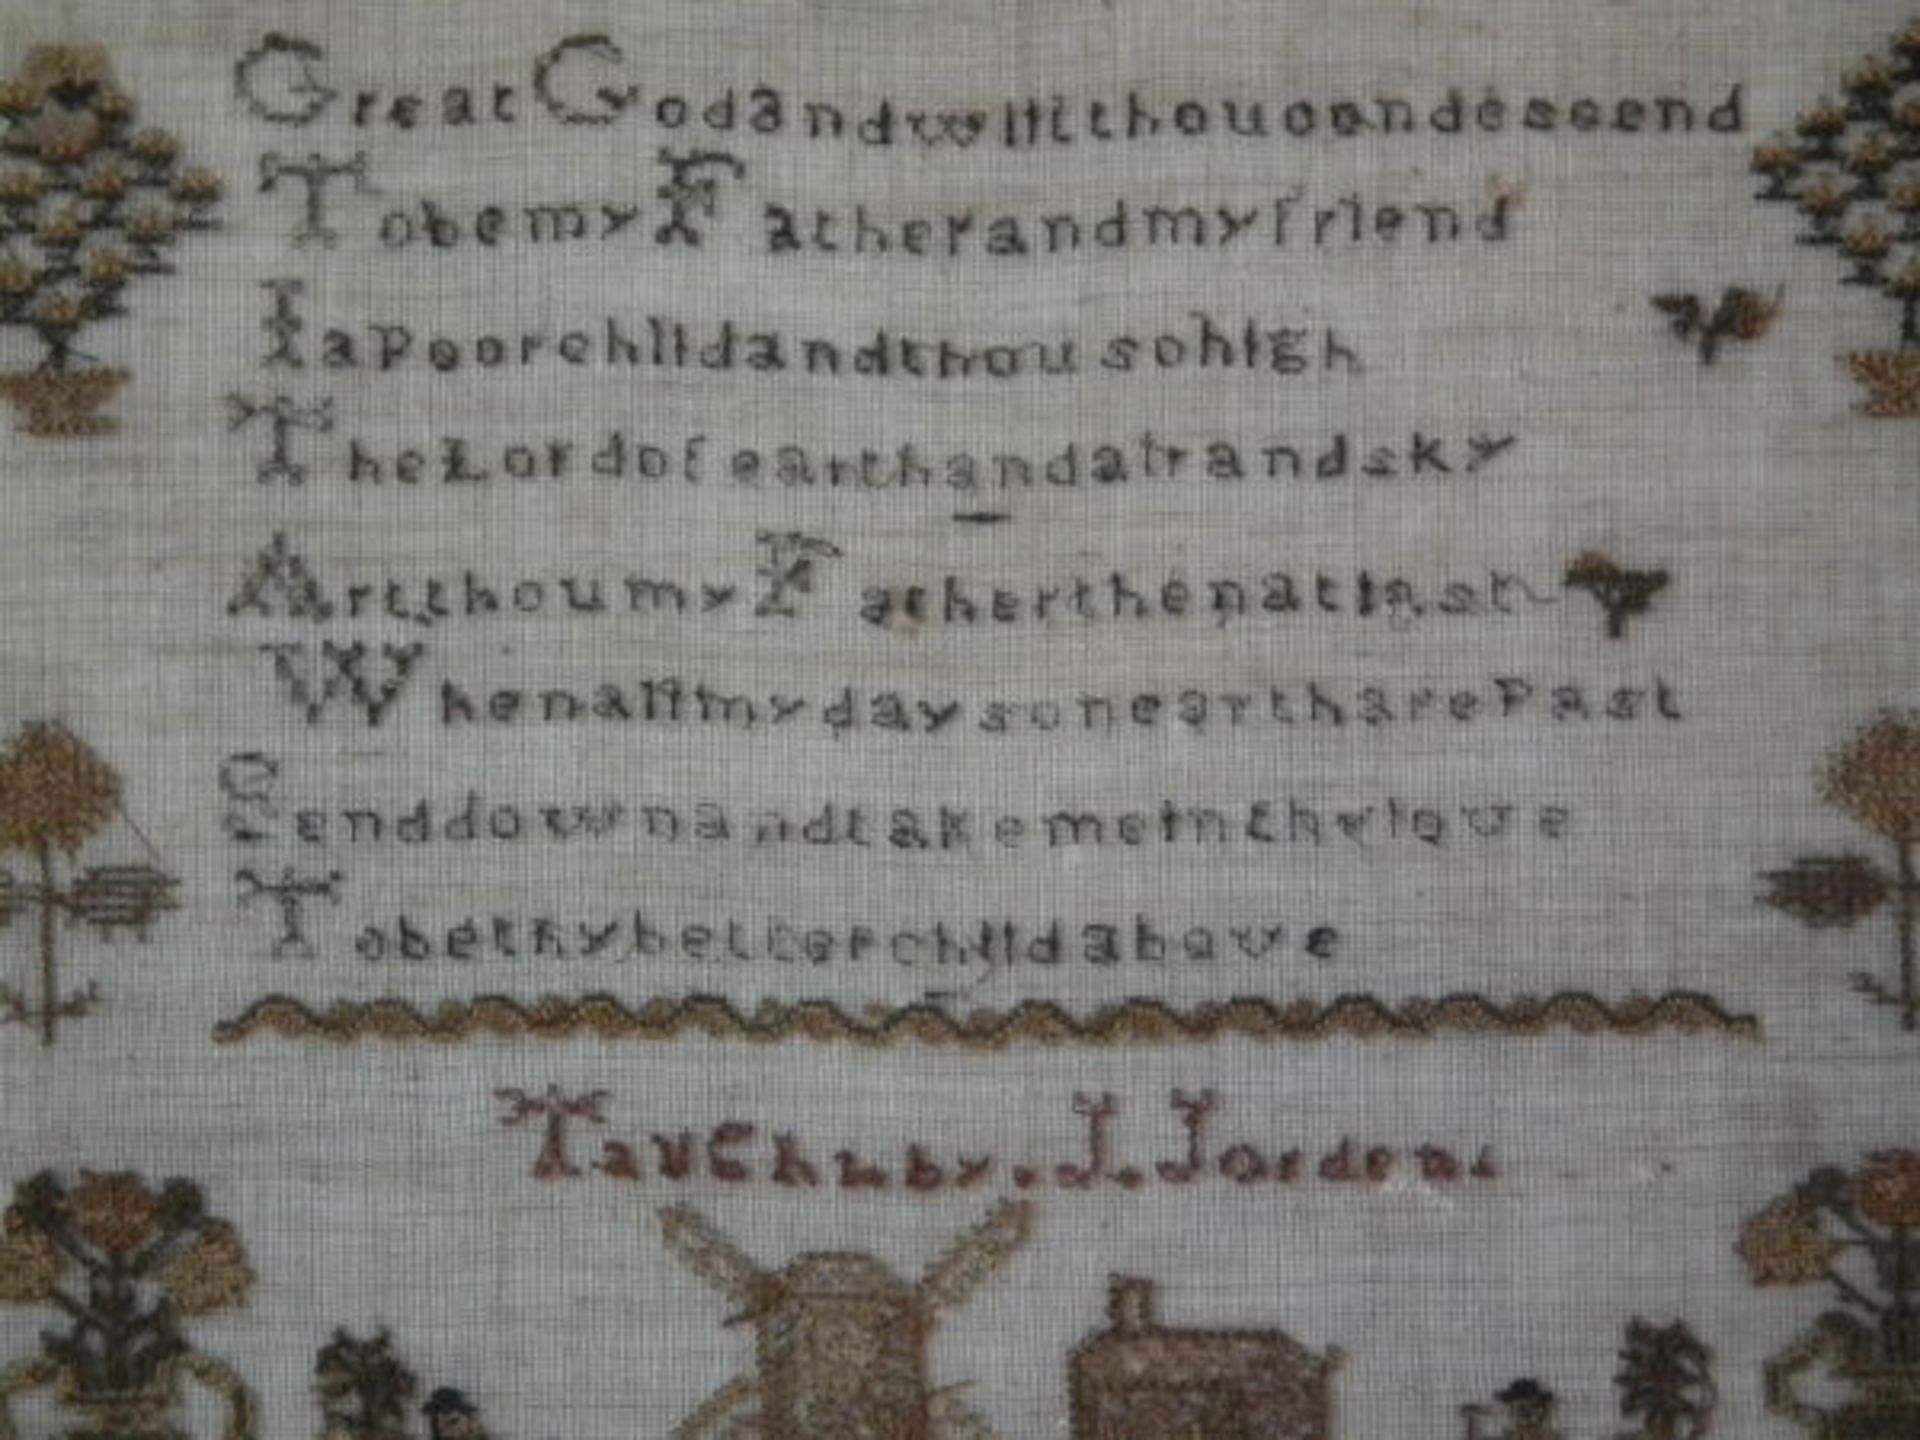 Great God and wilt thou condescend
To be my Father and my friend
I a poor child and thou so high
The Lord of earth and air and sky
Art thou my Father then at last
When all my days on earth are Past
Send down and take me in thy love
To be thy better child above
Tau by . J . Jordens